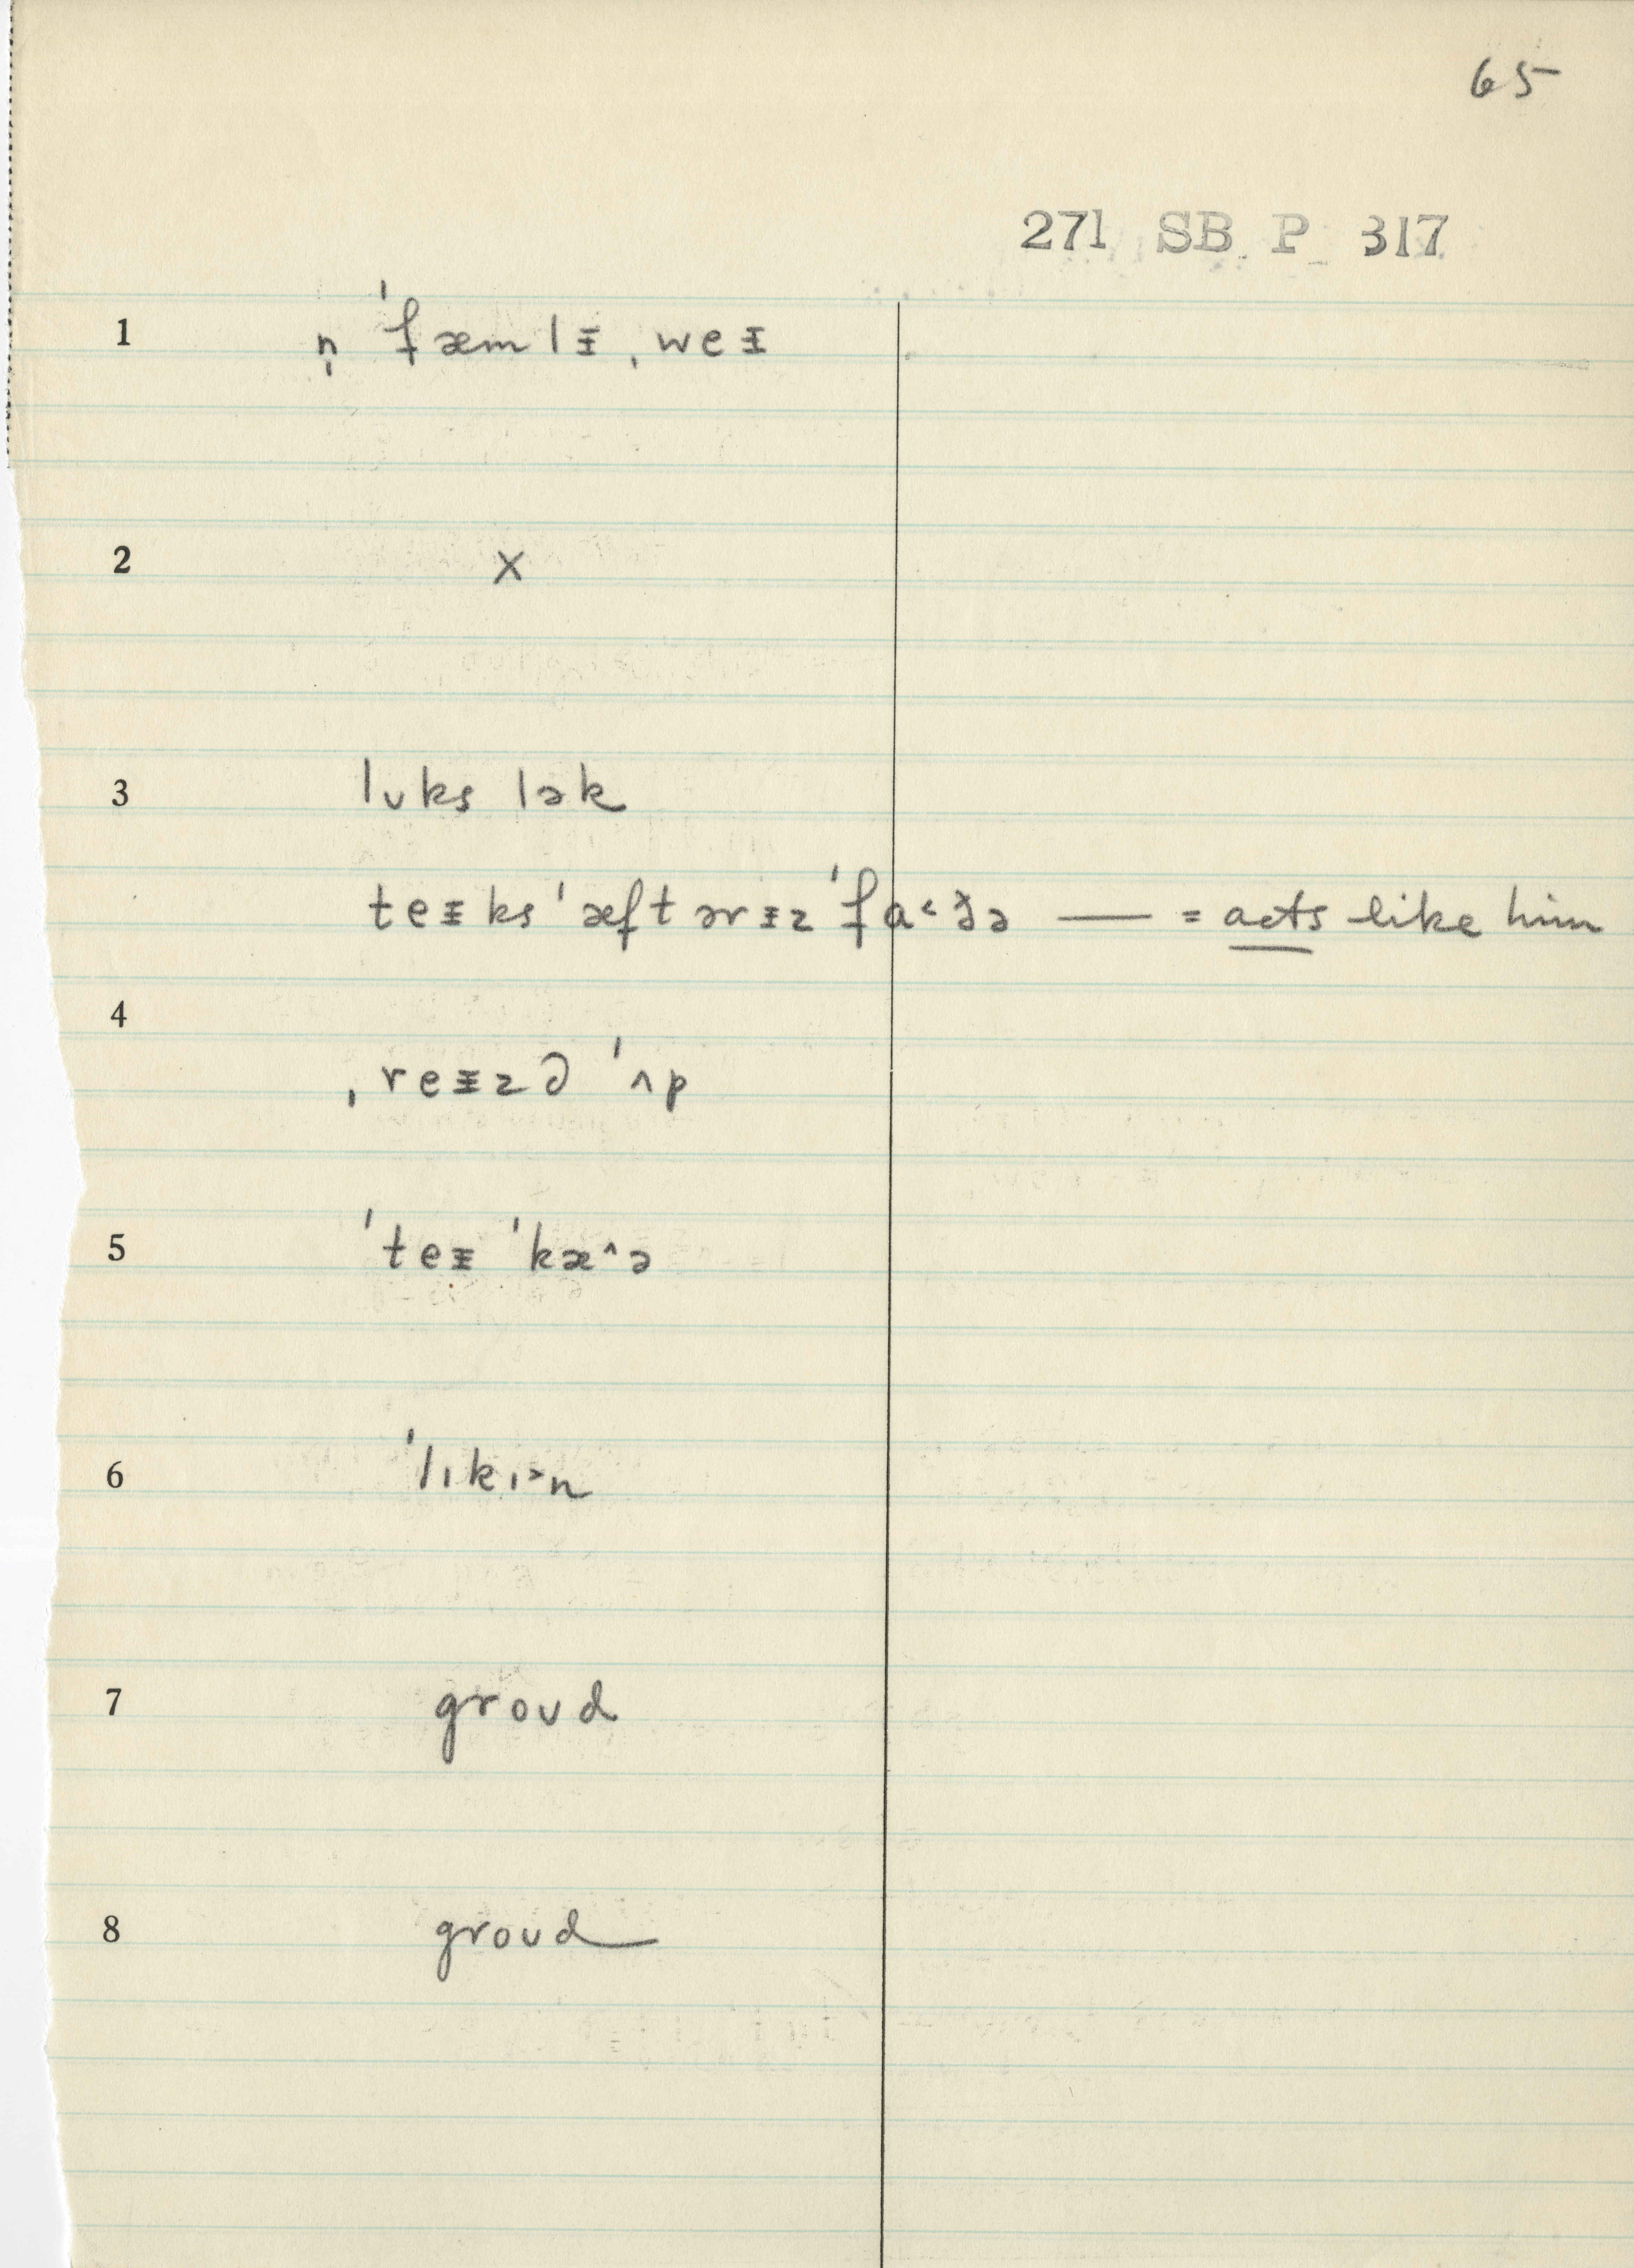 65
271 SB P 317
1 n̩ ˈfæmlᵻ ˌweᵻ
2 X
3 lʊks lək
teᵻks ˈæftərᵻz ˈfa˂ðə — = acts like him
4
ˌreᵻzd ˈʌp
5 ˈteᵻ ˈkæ^ə
6 ˈlɪkɪ˃n
7 groʊd
8 groʊd